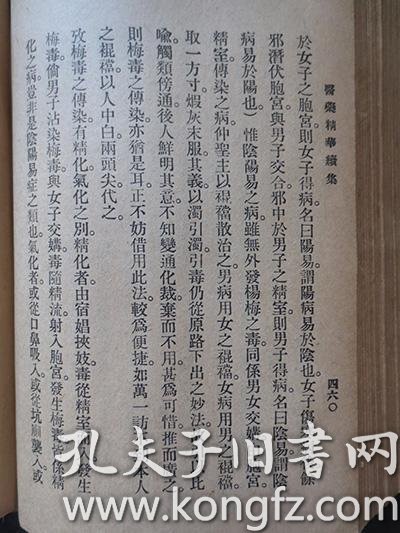 醫藥精華續集
四六〇
於女子之胞宮。則女子得病。名曰陽易。謂陽病易於陰也。女子傷
餘
邪潛伏胞宮。與男子交合。邪中於男子之精室。則男子得病。名曰陰易。謂陰
病易於陽也）惟陰陽易之病。雖無外發楊梅之毒。同係男女交媾。胞宮
精室傳染之病。仲聖主以裩襠散治之。男病用女之裩襠。女病用男之裩襠。
取一方寸。煆灰末服。其義以濁引濁。引毒仍從原路下出之妙法。以此
喩觸類傍通。後人鮮明其意。不知變通化裁。棄而不用。甚爲可惜。推而廣之。
則梅毒之傳染。亦猶是耳。正不妨借用此法。較爲便捷。如萬一訪
本人
之裩襠。以人中白兩頭尖代之。
攷梅毒之傳染。有精化氣化之別。精化者。由宿娼挾妓。毒從精室
發生
梅毒。倘男子沾染梅毒。與女子交媾。毒隨精流。射入胞宮。發生梅毒。
係精
化之病。豈非是陰陽易症之類也。氣化者。或從口鼻吸入。或從坑廁襲入。或
孔夫子旧书网
www.kongfz.com